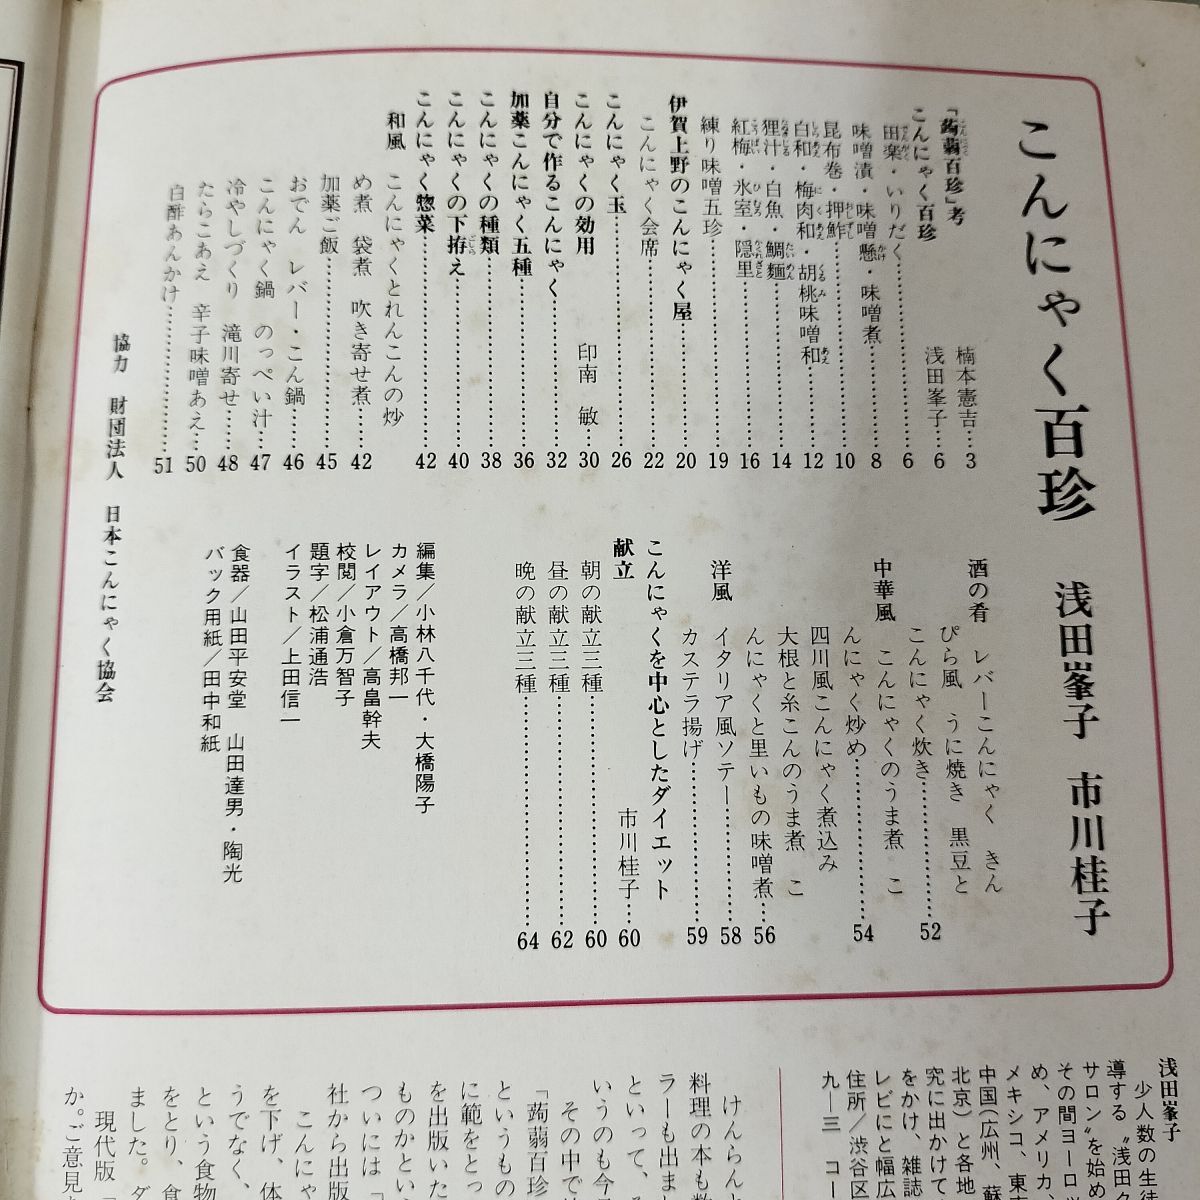 こんにゃく百珍　浅田峯子　市川桂子
「蒟蒻百珍」考　楠本憲吉…3
こんにゃく百珍　浅田峯子…6
田楽・いりだく…6
味噌漬・味噌懸・味噌煮…8
昆布巻・押鮓…10
白和・梅肉和・胡桃味噌和…12
狸汁・白魚・鯛麵…14
紅梅・氷室・隠里…16
練り味噌五珍…19
伊賀上野のこんにゃく屋…20
こんにゃく会席…22
こんにゃく玉…26
こんにゃくの効用　印南　敏…30
自分で作るこんにゃく…32
加薬こんにゃく五種…36
こんにゃくの種類…38
こんにゃくの下拵え…40
こんにゃく惣菜…42
和風　こんにゃくとれんこんの炒
め煮　袋煮　吹き寄せ煮…42
加薬ご飯…45
おでん　レバー・こん鍋…46
こんにゃく鍋　のっぺい汁…47
冷やしづくり　滝川寄せ…48
たらこあえ　辛子味噌あえ…50
白酢あんかけ…51
協力　財団法人　日本こんにゃく協会
酒の肴　レバーこんにゃく　きん
ぴら風　うに焼き　黒豆と
こんにゃく炊き…52
中華風　こんにゃくのうま煮　こ
んにゃく炒め…54
四川風こんにゃく煮込み
大根と糸こんのうま煮　こ
んにゃくと里いもの味噌煮…56
洋風　イタリア風ソテー…58
カステラ揚げ…59
こんにゃくを中心としたダイエット
献立　市川桂子…60
朝の献立三種…60
昼の献立三種…62
晩の献立三種…64
編集／小林八千代・大橋陽子
カメラ／高橋邦一
レイアウト／高畠幹夫
校閲／小倉万智子
題字／松浦通浩
イラスト／上田信一
食器／山田平安堂　山田達男・陶光
バック用紙／田中和紙
浅田峯子
少人数の生徒
導する〝浅田
サロン〟を始め
その間ヨーロッ
め、アメリカ、
メキシコ、東
中国(広州、蘇
北京)と各地
究に出かけて
をかけ、雑誌
レビにと幅広
住所／渋谷区
九―三　コー
けんらんと
料理の本も数
ラーも出ま
といって、
いうのも今
その中で
「蒟蒻百珍
というもの
に範をとっ
を出版いた
ものかとい
ついには「
社から出版
こんにゃ
を下げ、体
うでなく、
という食物
をとり、食
ました。ダ
現代版「
か。ご意見